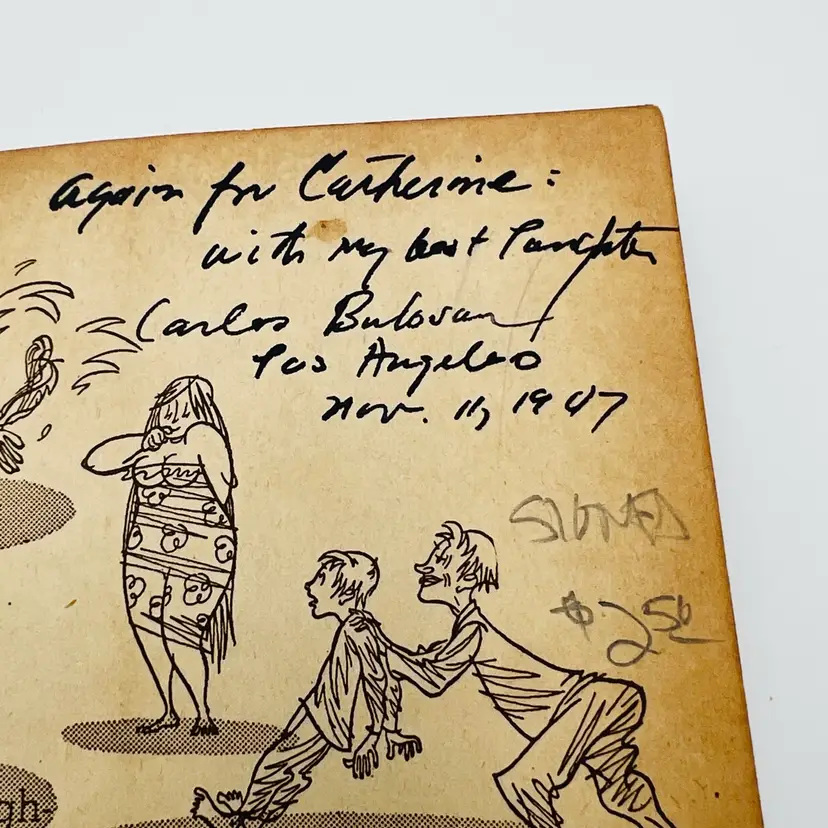 Again for Catherine:
with my best laughter
Carlos Bulosan
Los Angeles
Nov. 11, 1947
SIGNED
$2.50
gh-